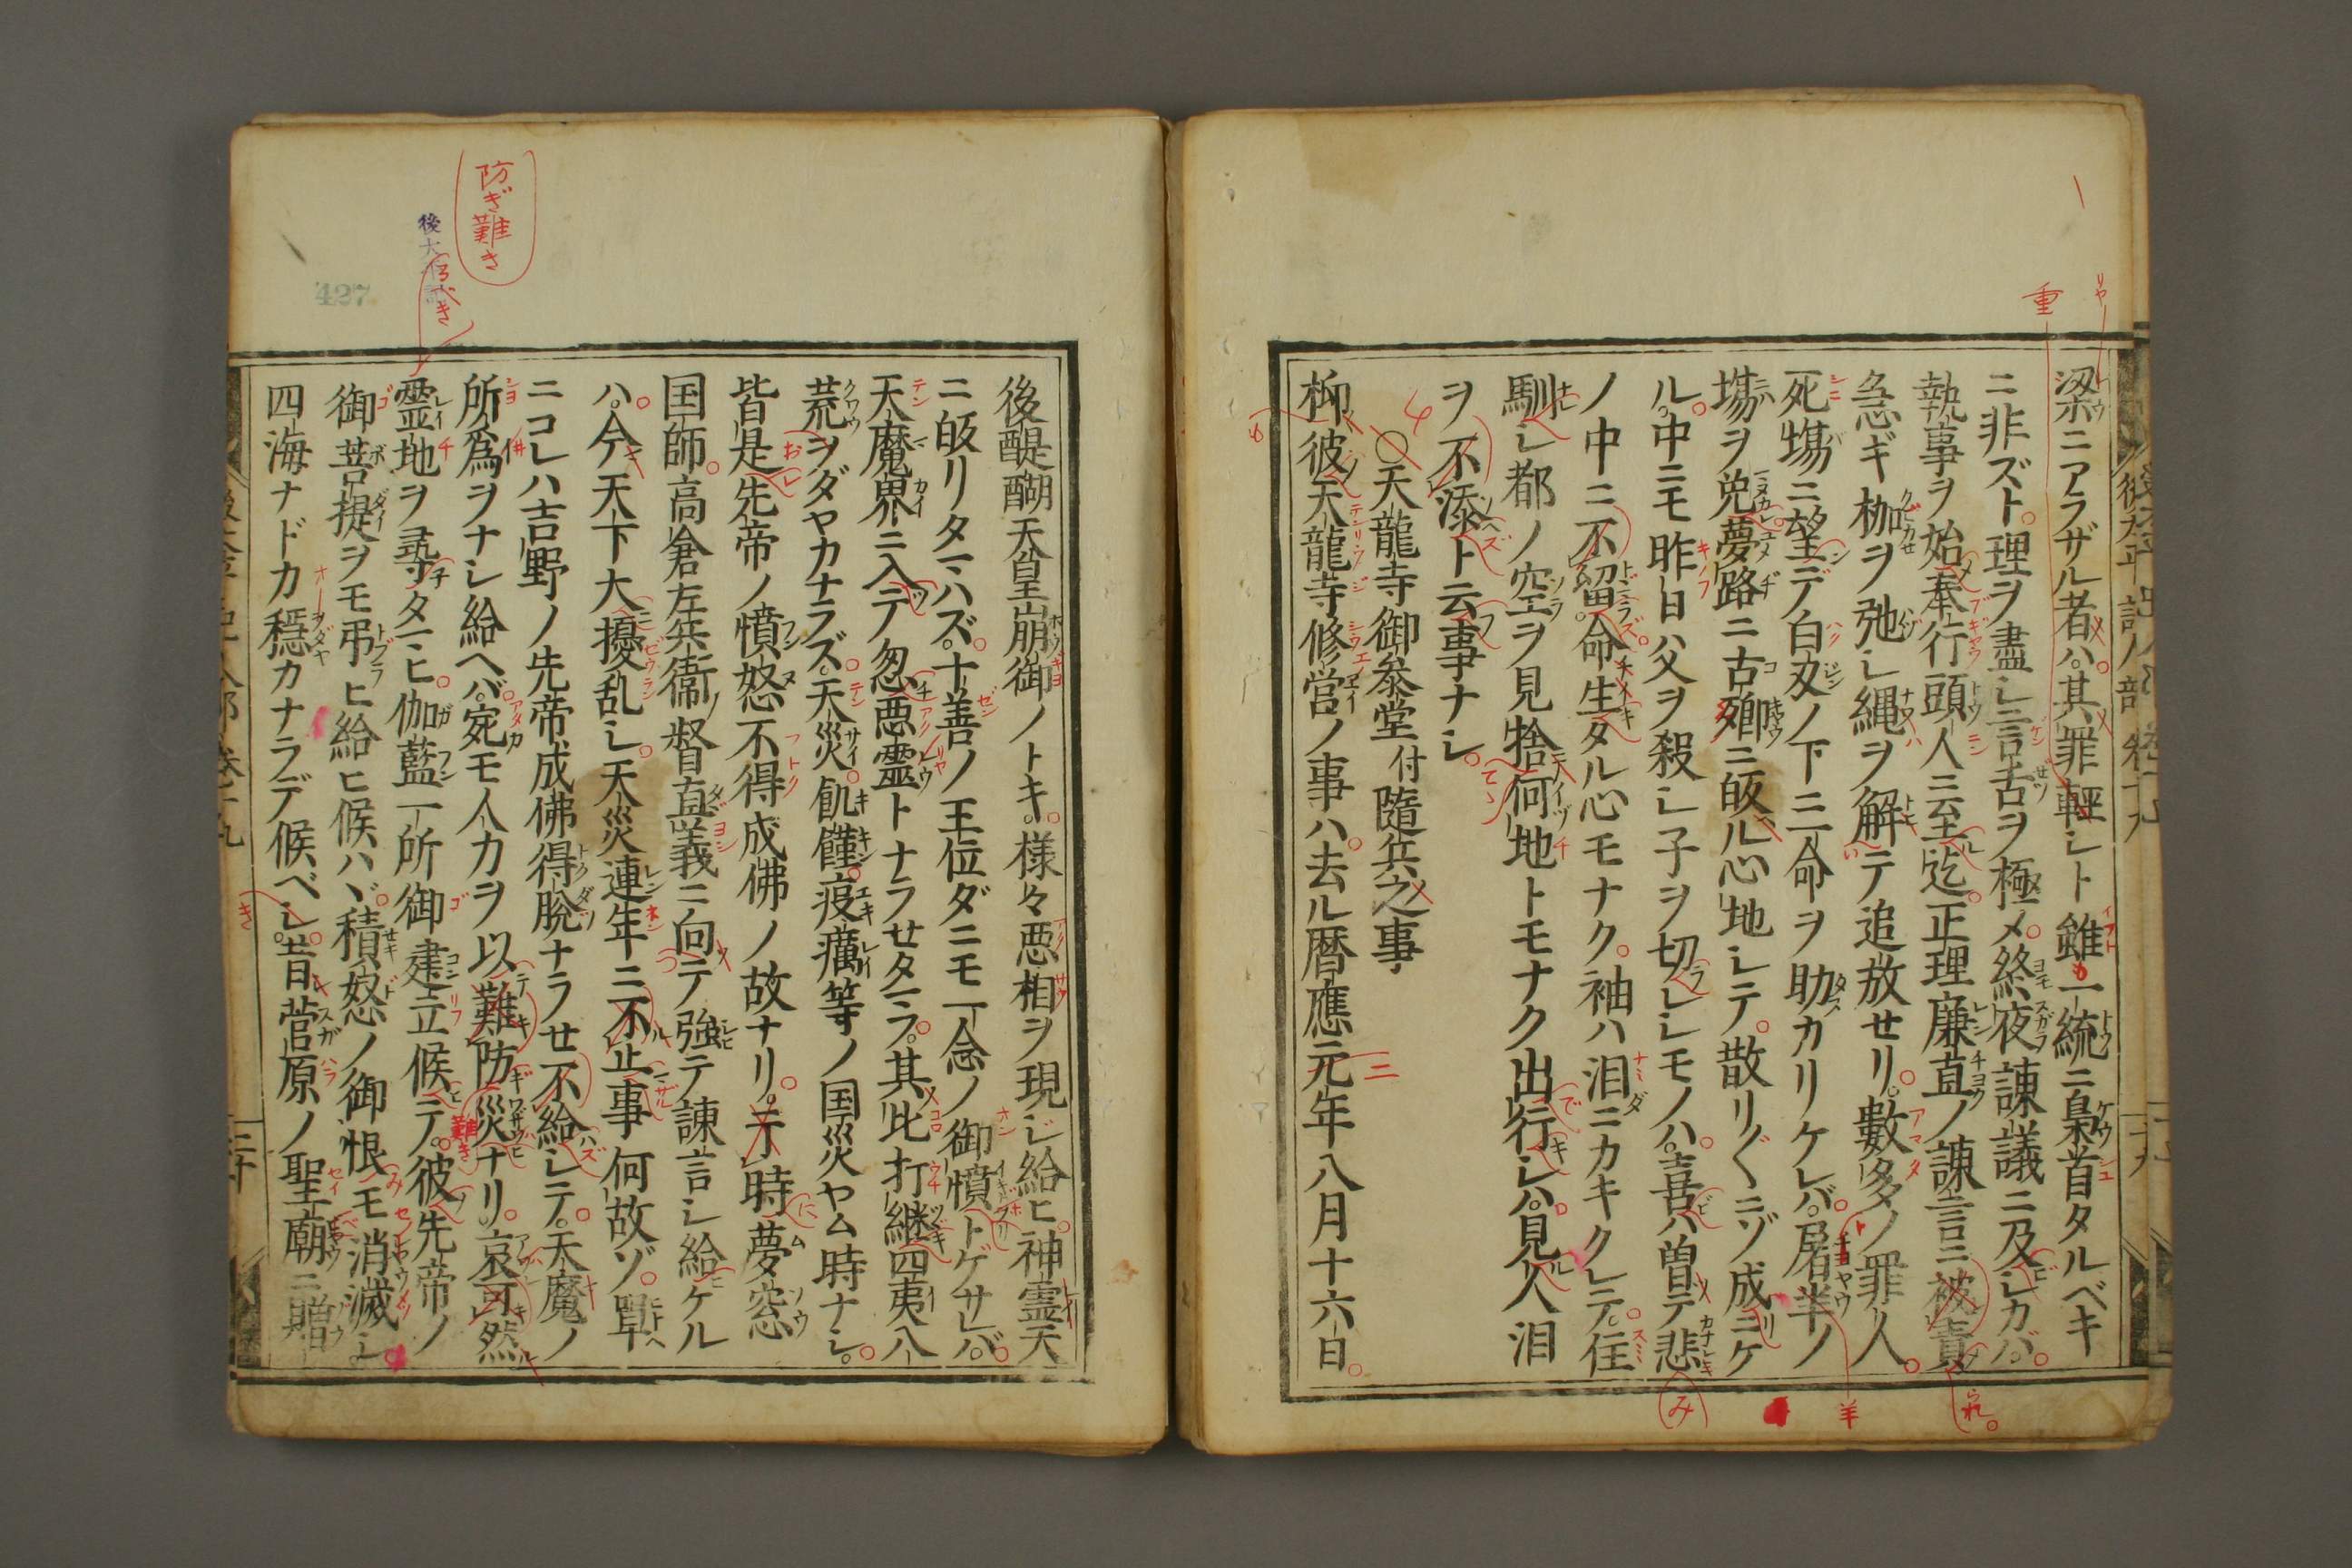 梁ニアラザル者ハ。其罪輕シト雖。一統ニ梟首タルベキ
ニ非ズト。理ヲ盡シ言舌ヲ極メ。終夜諫議ニ及シカバ。
執事ヲ始奉行頭人ニ至迄。正理廉直ノ諫言ニ被責
急ギ枷ヲ弛シ縄ヲ解テ追放セリ。數多ノ罪人
死塲ニ望デ白刄ノ下ニ命ヲ助カリケレバ。屠羊ノ
塲ヲ免夢路ニ古郷ニ皈ル心地シテ。散リ〲ニゾ成ニケ
ル。中ニモ昨日父ヲ殺シ子ヲ切レシモノハ。喜ハ曽テ悲
ノ中ニ不留。命生タル心モナク。袖ハ泪ニカキクレテ。住
馴シ都ノ空ヲ見捨何地トモナク出行シハ。見人泪
ヲ不添ト云事ナシ。
○天龍寺御参堂付隨兵之事
柳彼天龍寺修営ノ事ハ。去ル暦應元年八月十六日。
後醍醐天皇崩御ノトキ。様々悪相ヲ現ジ給ヒ。神霊天
ニ皈リタマハズ。十善ノ王位ダニモ一念ノ御憤トゲザレバ。
天魔界ニ入テ忽悪霊トナラせタマフ。其比打継四夷八
荒ヲダヤカナラズ。天災。飢饉。疫癘等ノ国災ヤム時ナシ。
皆是先帝ノ憤怒不得成佛ノ故ナリ。于時夢窓
国師。高倉左兵衛督直義ニ向テ強テ諫言シ給ケル
ハ。今天下大擾乱シ。天災連年ニ不止事何故ゾ。單
ニコレハ吉野ノ先帝成佛得脱ナラせ不給シテ。天魔ノ
所爲ヲナシ給ヘバ。宛モ人力ヲ以難防災ナリ。哀可然
霊地ヲ尋タマヒ。伽藍一所御建立候テ。彼先帝ノ
御菩提ヲモ弔ヒ給ヒ候ハヾ。積怒ノ御恨モ消滅シ。
四海ナドカ穏カナラデ候ベシ。昔菅原ノ聖廟ニ贈
防ぎ難き
るべき
427
重
羊
み
られ。
き